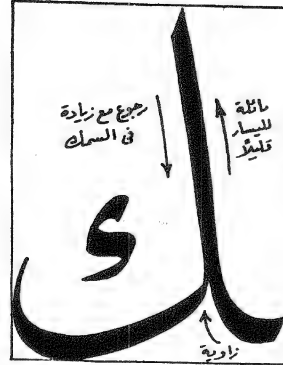 مائلة
لليسار
قليلاً
رجوع مع زيادة
في السمك
ك
زاوية